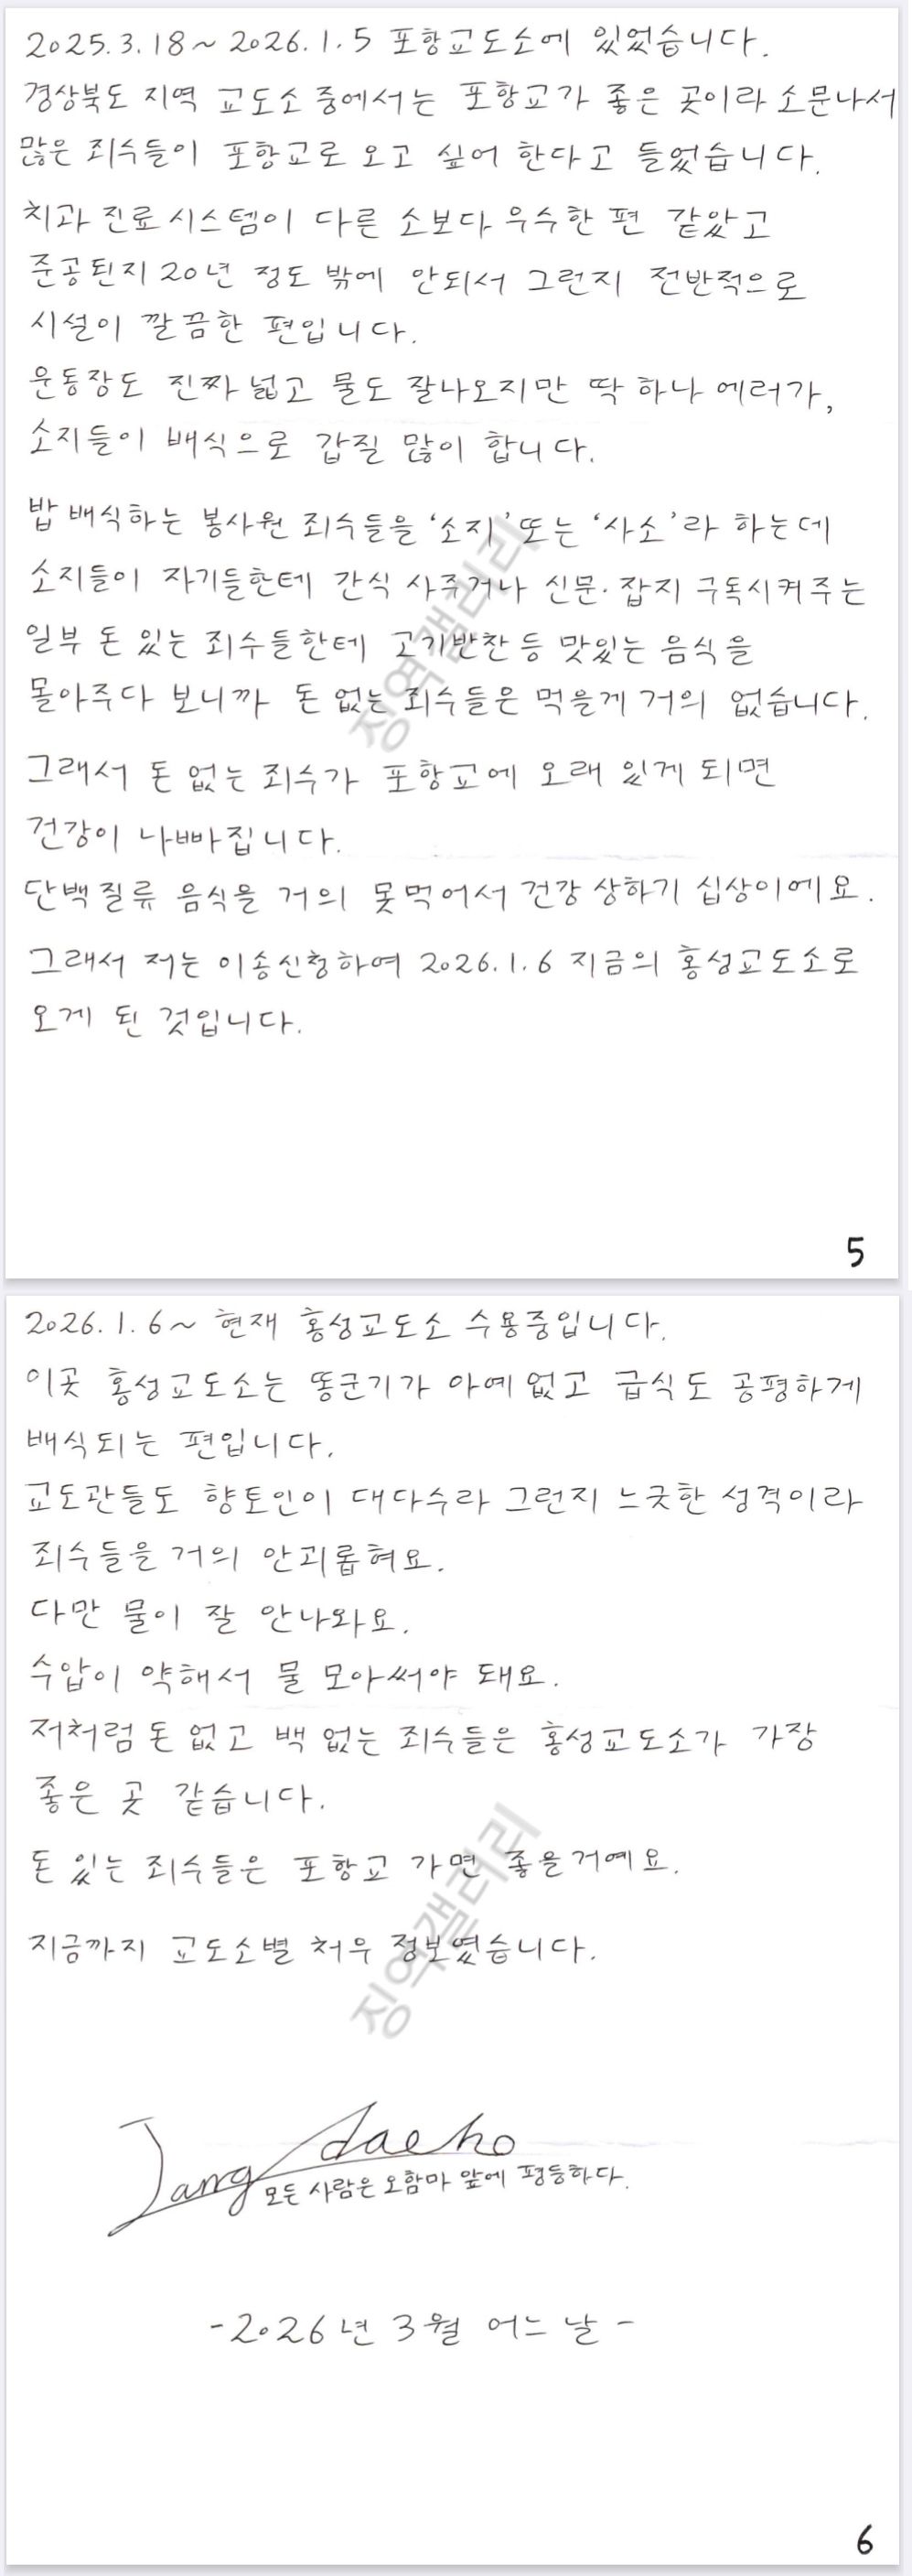 2025.3.18~2026.1.5 포항교도소에 있었습니다.
경상북도 지역 교도소 중에서는 포항교가 좋은 곳이라 소문나서
많은 죄수들이 포항교로 오고 싶어 한다고 들었습니다.
치과 진료시스템이 다른 소보다 우수한 편 같았고
준공된지 20년 정도 밖에 안되서 그런지 전반적으로
시설이 깔끔한 편입니다.
운동장도 진짜 넓고 물도 잘나오지만 딱 하나 에러가,
소지들이 배식으로 갑질 많이 합니다.
밥 배식하는 봉사원 죄수들을 '소지' 또는 '사소'라 하는데
소지들이 자기들한테 간식 사주거나 신문·잡지 구독시켜주는
일부 돈 있는 죄수들한테 고기반찬 등 맛있는 음식을
몰아주다 보니까 돈 없는 죄수들은 먹을게 거의 없습니다.
그래서 돈 없는 죄수가 포항교에 오래 있게 되면
건강이 나빠집니다.
단백질류 음식을 거의 못먹어서 건강 상하기 십상이에요.
그래서 저는 이송신청하여 2026.1.6 지금의 홍성교도소로
오게 된 것입니다.
징역갤러리
5
2026.1.6~ 현재 홍성교도소 수용중입니다.
이곳 홍성교도소는 똥군기가 아예 없고 급식도 공평하게
배식되는 편입니다.
교도관들도 향토인이 대다수라 그런지 느긋한 성격이라
죄수들을 거의 안괴롭혀요.
다만 물이 잘 안나와요.
수압이 약해서 물 모아써야 돼요.
저처럼 돈 없고 백 없는 죄수들은 홍성교도소가 가장
좋은 곳 같습니다.
돈 있는 죄수들은 포항교 가면 좋을거예요.
지금까지 교도소별 처우 정보였습니다.
징역갤러리
Jang daeho
모든 사람은 오함마 앞에 평등하다.
-2026년 3월 어느 날-
6